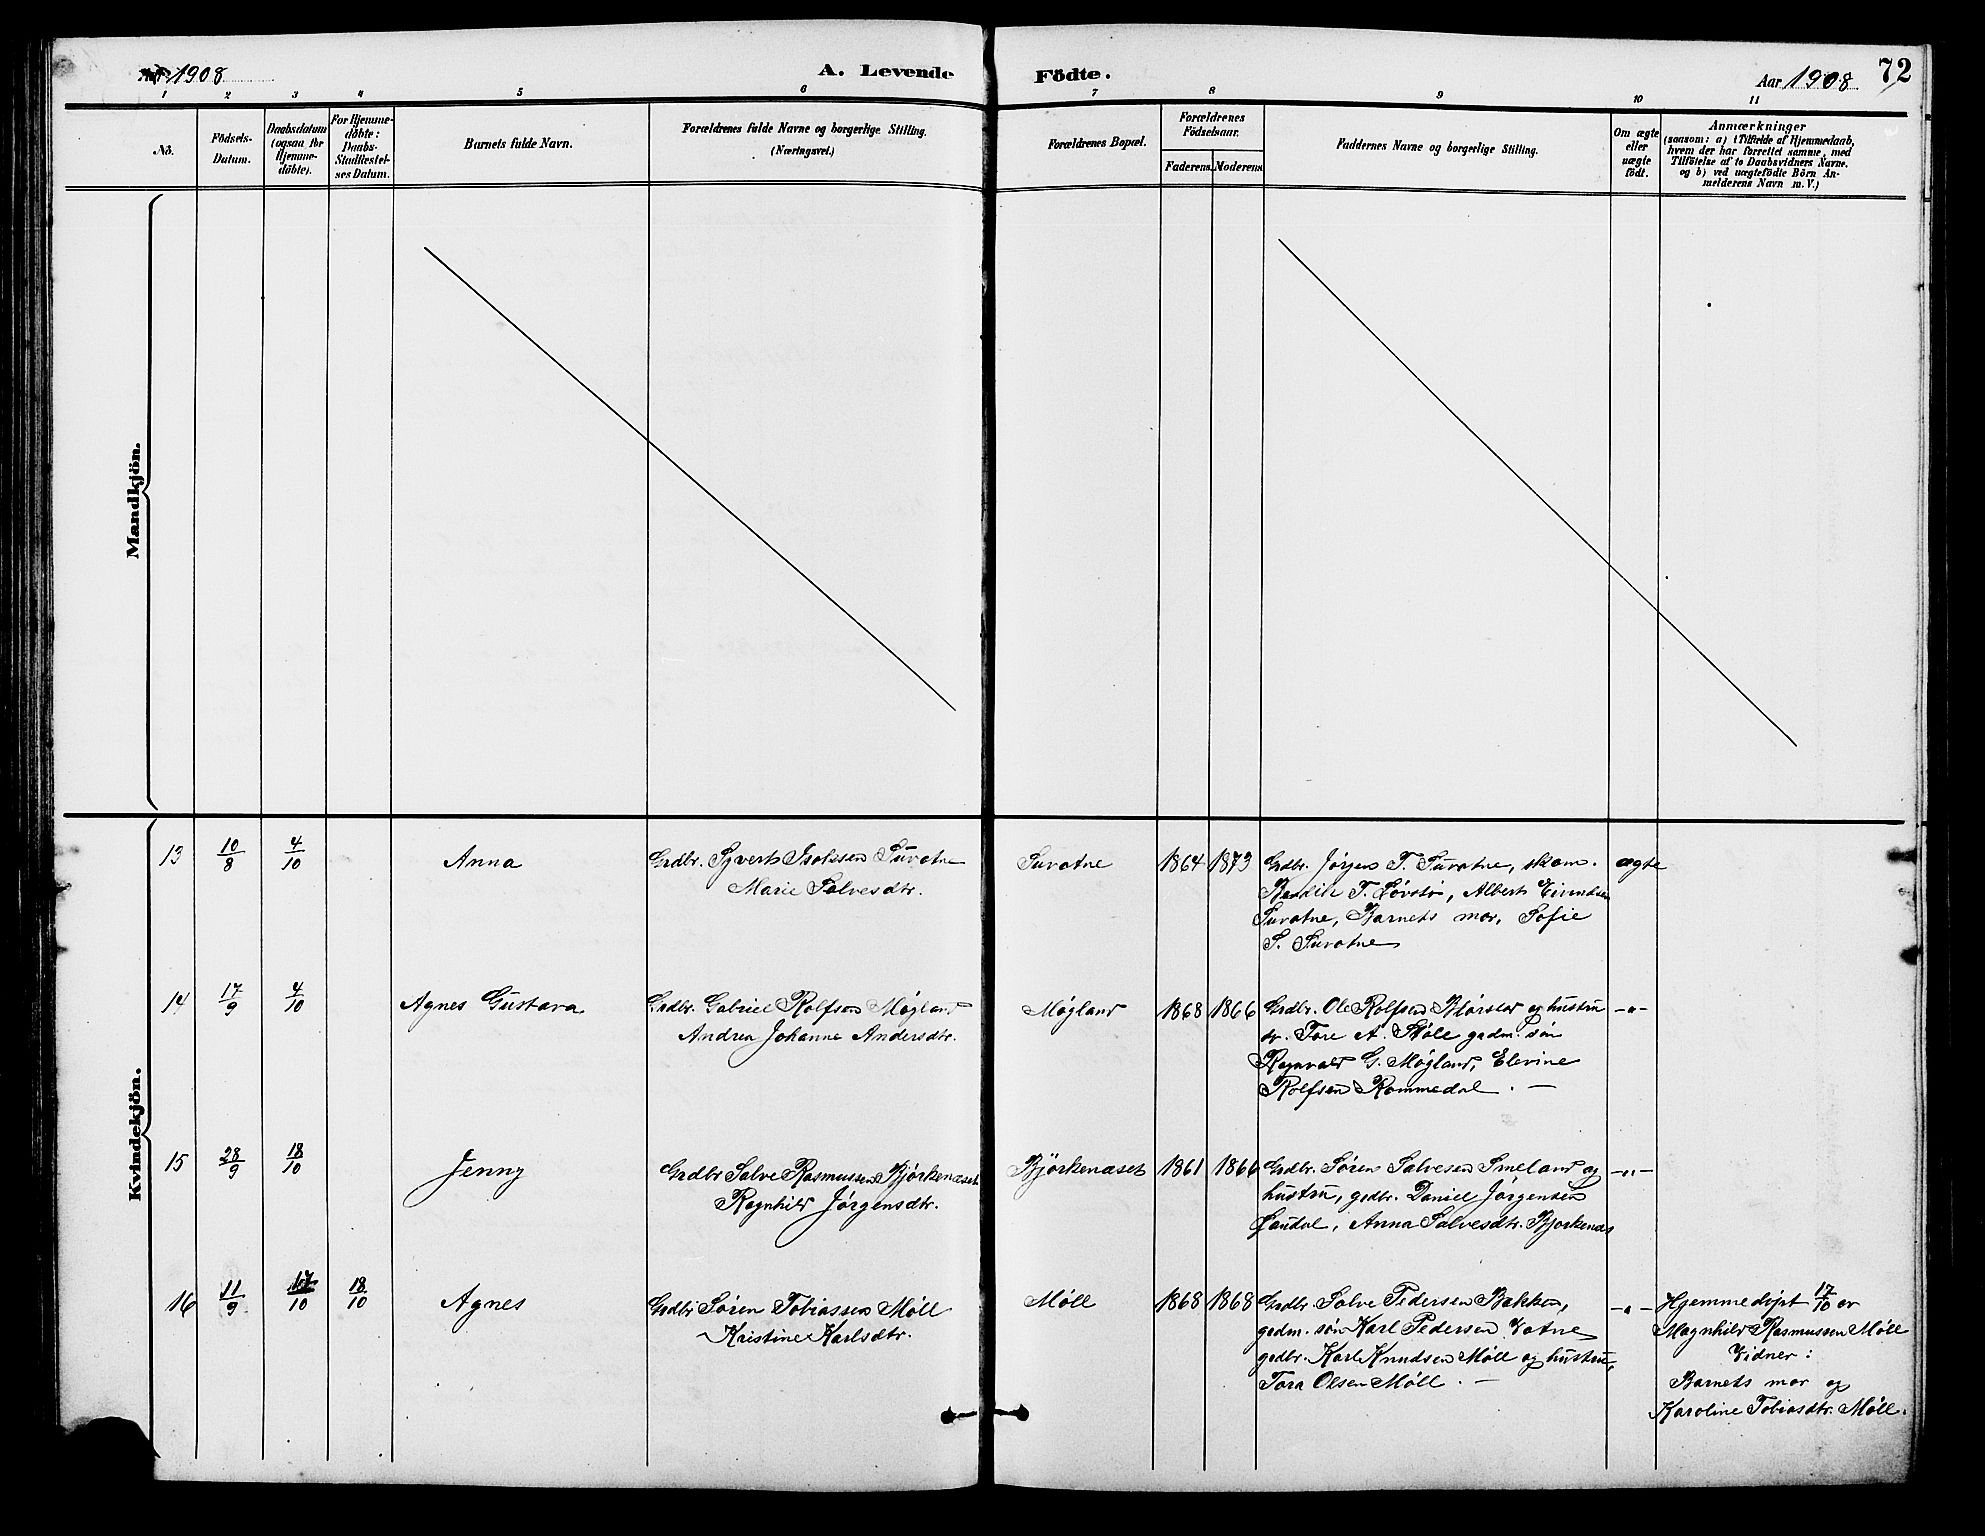 Aar 1908
A. Levende
Födte.
Aar 1908
72
1 2 3 4 5 6 7 8 9 10 11
No.
Födsels-
Datum.
Daabsdatum
(ogsaa for
Hjemme-
döbte).
For Hjemme-
döbte:
Daabs-
Stadfæstel-
ses Datum.
Barnets fulde Navn.
Forældrenes fulde Navne og borgerlige Stilling.
(Næringsvei.)
Forældrenes Bopæl.
Forældrenes
Födselsaar.
Faderens. Moderens.
Faddernes Navne og borgerlige Stilling.
Om ægte
eller
uægte
födt.
Anmærkninger
(saasom: a) i Tilfælde af Hjemmedaab,
hvem der har forrettet samme, med
Tilföielse af to Daabsvidners Navne.
og b) ved uægtefödte Börn An-
melderens Navn m. V.)
Mandkjön.
Kvindekjön.
13 10/8 4/10 Anna
Grdbr. Syvert Isaksen Suvatne
Marie Salvesdtr.
Suvatne 1864 1873
Grdbr. Jørgen T. Suvatne, skom.
T. Løvstø, Albert
Suvatne, Barnets mor, Sofie
S. Suvatne
ægte
14 17/9 4/10 Agnes Gustava
Grdbr. Gabriel Rolfsen Møgland
Andrea Johanne Andersdtr.
Møgland 1868 1866
Grdbr. Ole Rolfsen og hustru
Tore A. Støle gadm. søn
Ragnvald G. Møgland, Elevine
Rolfsen Rommedal . —
—"—
15 28/9 18/10 Jenny
Grdbr Salve Rasmussen Bjørkenæset
Ragnhild Jørgensdtr.
Bjørkenæset 1861 1866
Grdbr. Søren Salvesen Smeland og
hustru, gdbr. Daniel Jørgensen
Laudal, Anna Salvesdtr. Bjørkenæs
—"—
16 11/9 17/10 18/10 Agnes
Grdbr Søren Tobiassen Møll
Kristine Karlsdtr.
Møll 1868 1868
Grdbr. Salve Pedersen Bakken,
gadm. søn Karl Pedersen Vatne
gdbr. Karl Knudsen Møll og hustru,
Tora Olsen Møll . —
—"—
Hjemmedøpt 17/10 av
Magnhild Rasmussen Møll
Vidner:
Barnets mor og
Karoline Tobiasdtr. Møll.